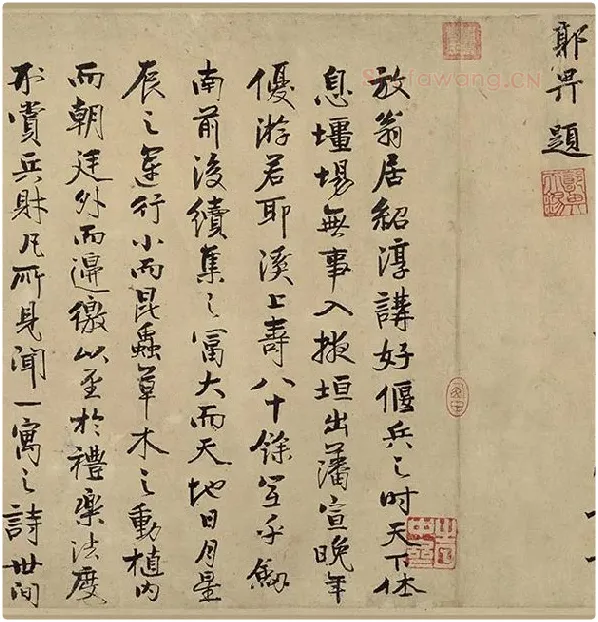 郭畀題
放翁居紹淳講好偃兵之时天下休
息壃場無事入掖垣出藩宣晚年
優游若耶溪上壽八十餘宜乎劒
南前後續集之富大而天地日月星
辰之運行小而昆蟲草木之動植内
而朝廷外而邊徼以至於禮樂法度
刑賞兵財凡所見聞一寓之詩世間
fawang.CN